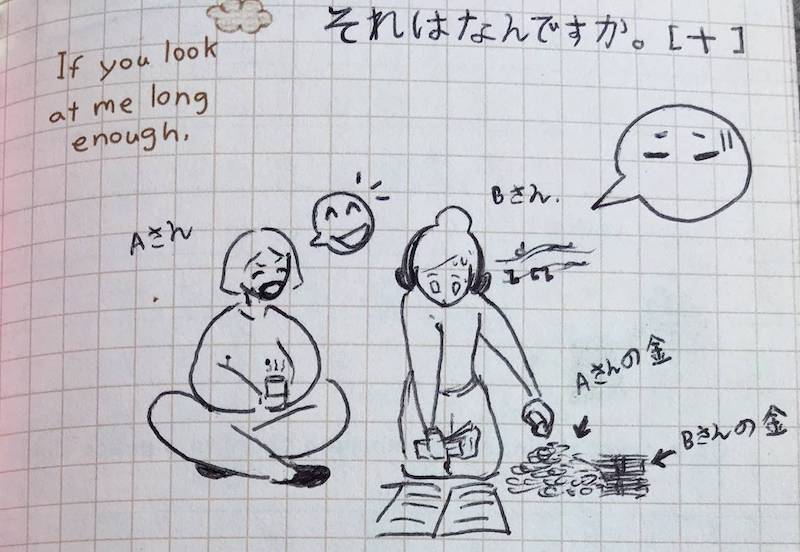 それはなんですか。[+]
If you look
at me long
enough.
Aさん
Bさん.
Aさんの金
Bさんの金